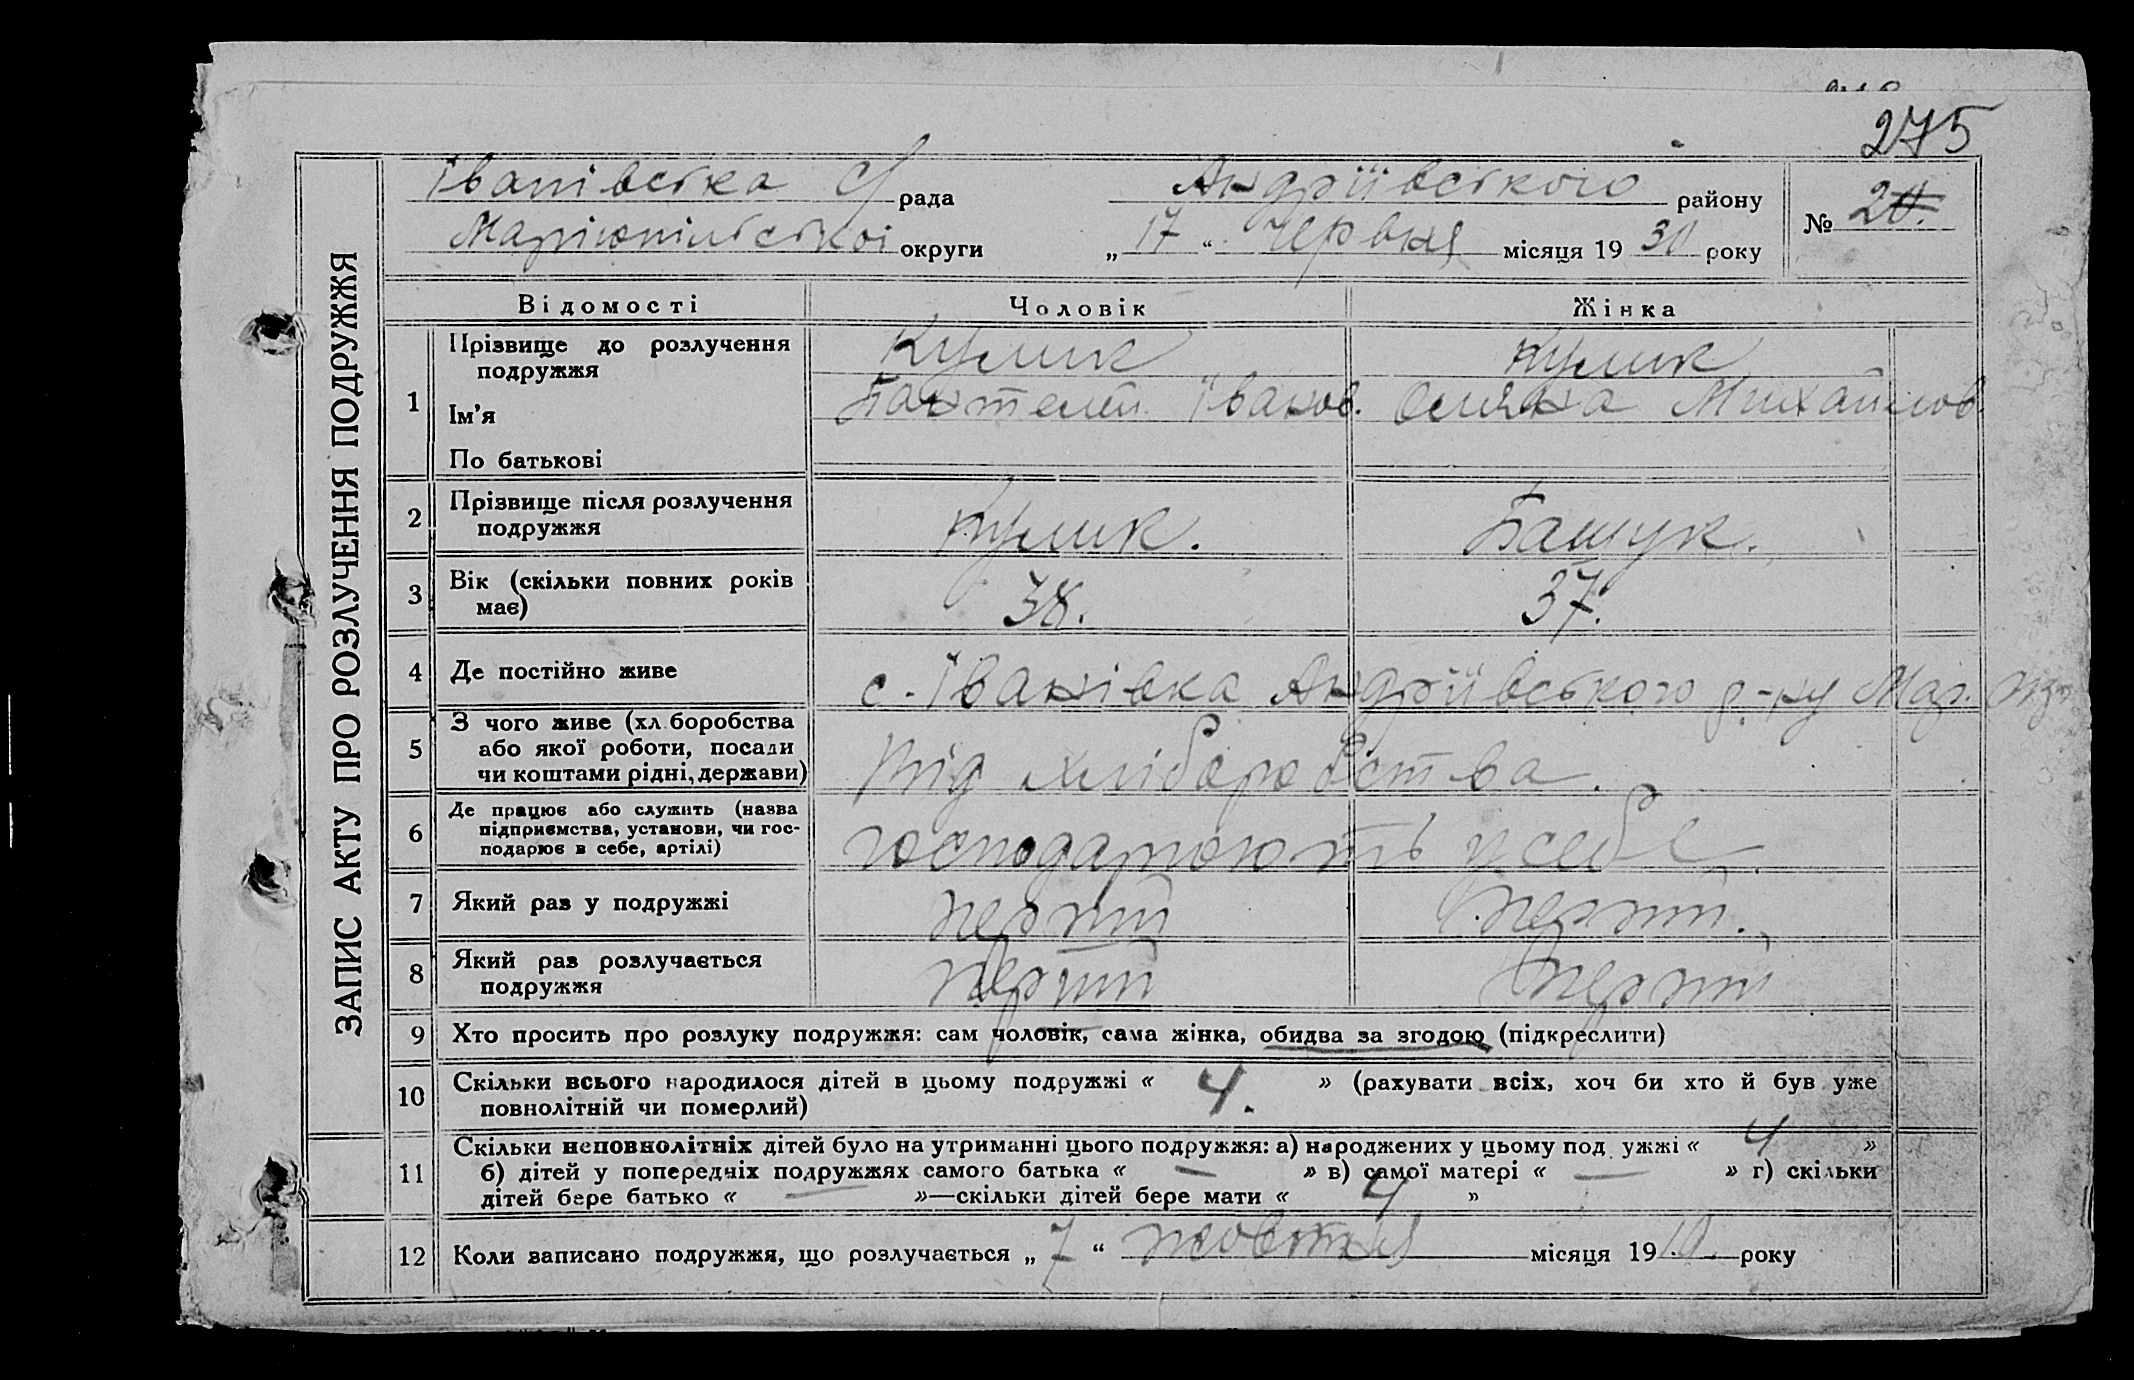 275
Іванівська с/рада Андріївського району
№ 20.
Маріюпільської округи „ 17 “ Червня місяця 19 30 року
ЗАПИС АКТУ ПРО РОЗЛУЧЕННЯ ПОДРУЖЖЯ
Відомості Чоловік Жінка
1 Прізвище до розлучення Кулик Кулик
подружжя
Ім’я Пантелей Іванов. Оляна Михайлов.
По батькові
2 Прізвище після розлучення
подружжя Кулик. Башук.
3 Вік (скільки повних років
має) 38. 37.
4 Де постійно живе с. Іванівка Андріївського р-ну Мар. окр.
5 З чого живе (хл боробства
або якої роботи, посади
чи коштами рідні, держави) Від хліборобства.
6 Де працює або служить (назва
підприємства, установи, чи гос-
подарює в себе, артілі) господарюють у себе
7 Який раз у подружжі перший перший.
8 Який раз розлучається
подружжя перший перший
9 Хто просить про розлуку подружжя: сам чоловік, сама жінка, обидва за згодою (підкреслити)
10 Скільки всього народилося дітей в цьому подружжі « 4. » (рахувати всіх, хоч би хто й був уже
повнолітній чи померлий)
11 Скільки неповнолітніх дітей було на утриманні цього подружжя: а) народжених у цьому под ужжі « 4 »
б) дітей у попередніх подружжях самого батька « — » в) самої матері « — » г) скільки
дітей бере батько « — »—скільки дітей бере мати « 4 »
12 Коли записано подружжя, що розлучається „ 7 “ жовтня місяця 19 10. року